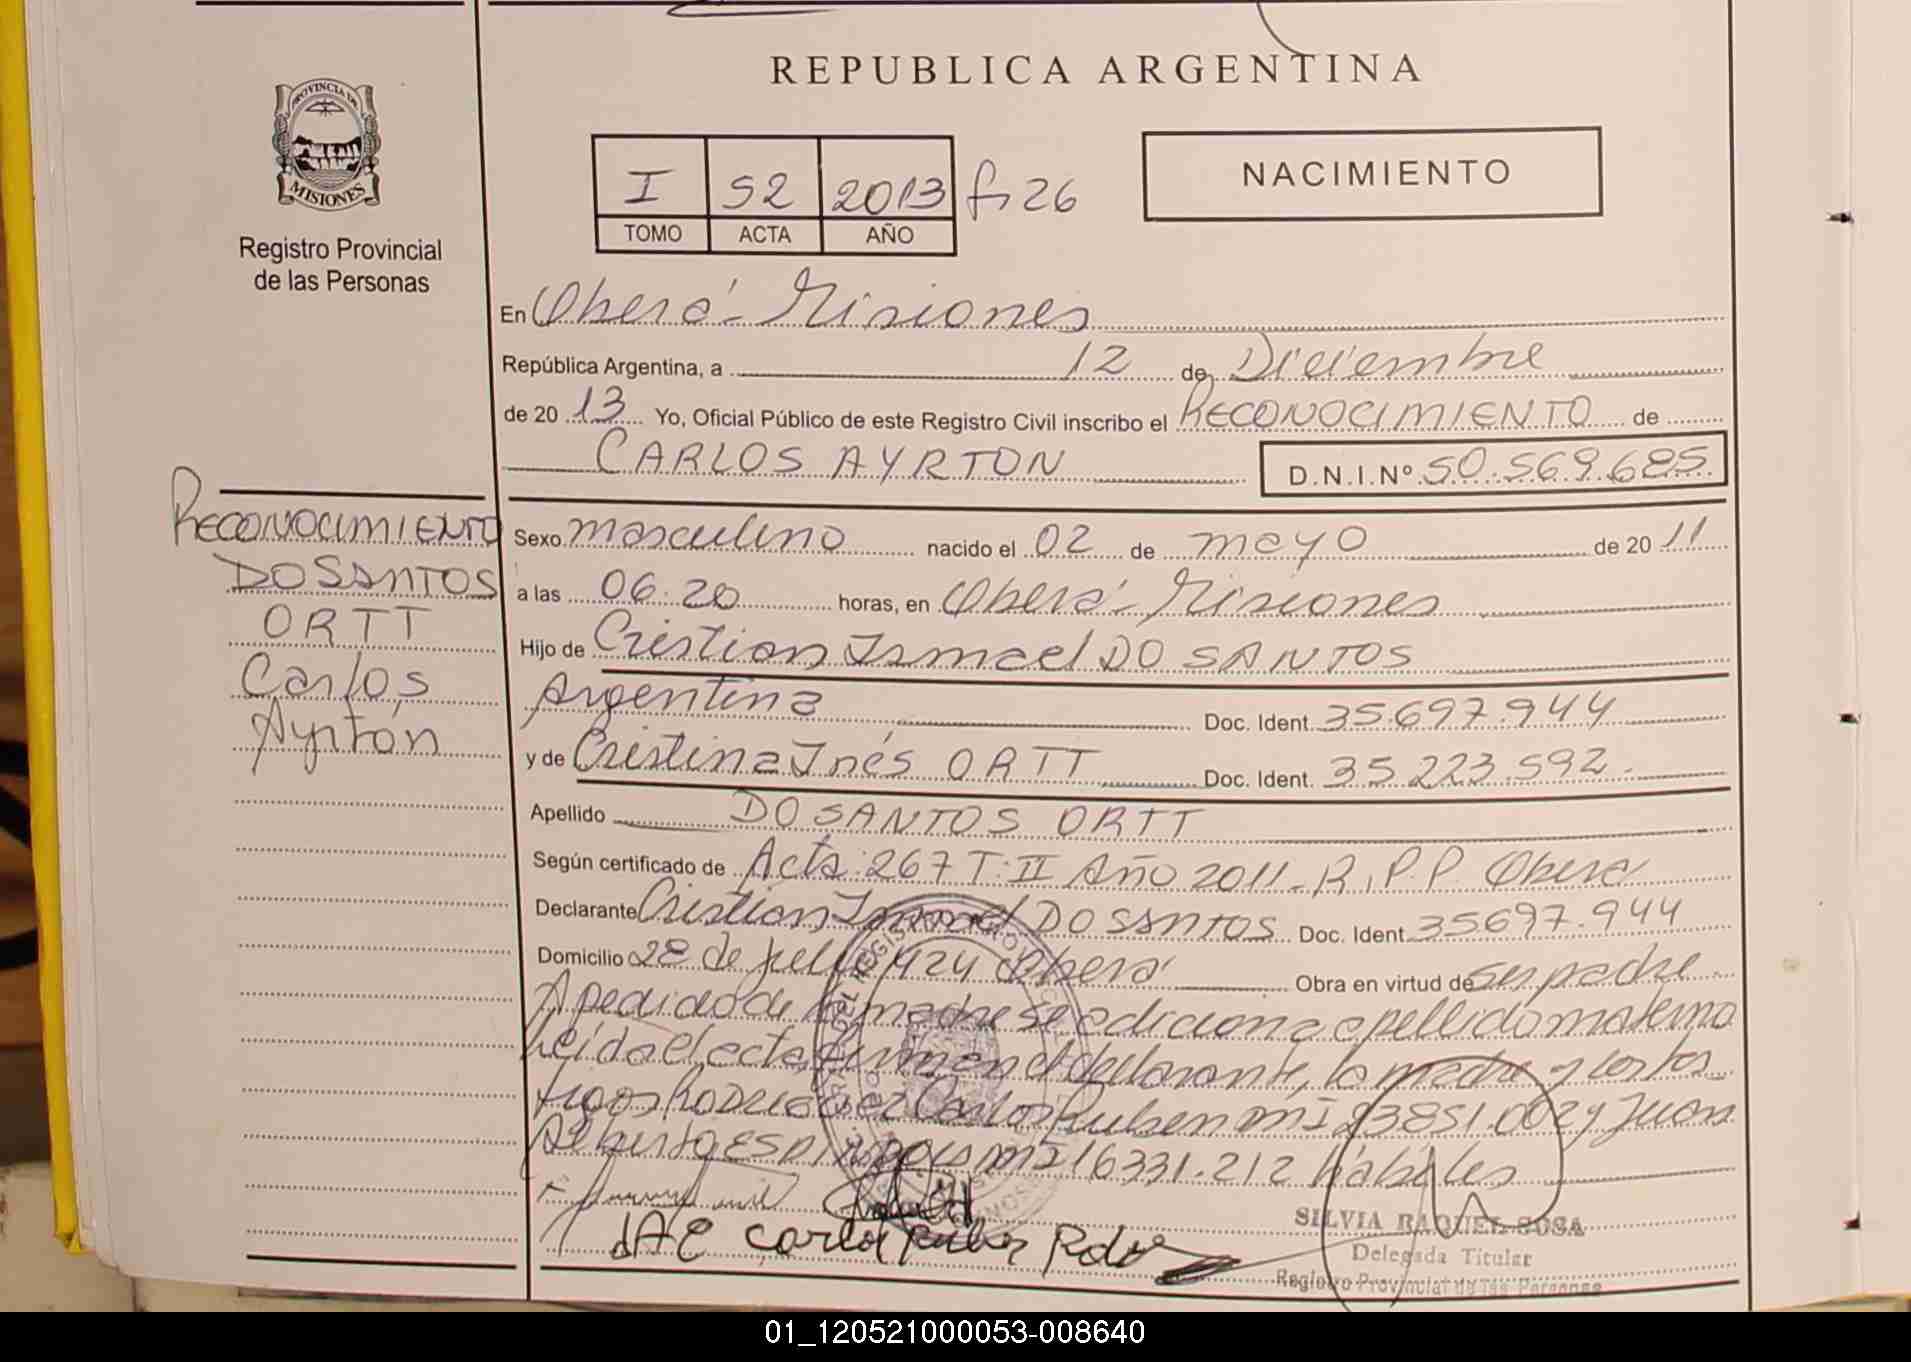 REPUBLICA ARGENTINA
PROVINCIA DE
MISIONES
Registro Provincial
de las Personas
I 52 2013 f, 26
TOMO ACTA AÑO
NACIMIENTO
En Oberá - Misiones
República Argentina, a 12 de Diciembre
de 20 13 Yo, Oficial Público de este Registro Civil inscribo el RECONOCIMIENTO de
CARLOS AYRTON D.N.I.Nº 50.569.685
RECONOCIMIENTO
DO SANTOS
ORTT
Carlos
Ayrtón
Sexo masculino nacido el 02 de mayo de 20 11
a las 06.20 horas, en Oberá - Misiones
Hijo de Cristian Ismael DO SANTOS
Argentina Doc. Ident. 35.697.944
y de Cristina Inés ORTT Doc. Ident. 35.223.592.
Apellido DO SANTOS ORTT
Según certificado de Acta: 267 T: II Año 2011 - R.P.P Oberá
Declarante Cristian Ismael DO SANTOS Doc. Ident. 35697.944
Domicilio 28 de Julio 1424 Oberá Obra en virtud de ser padre
A pedido de la madre se adiciona apellido materno
Leída el acta, firman el declarante, la madre y los tes
tigos RODRIGUEZ Carlos Ruben MI 23851.002 y Juan
Alberto MI 16331.212 hábiles
dAE Carlos Ruben Rdz
SILVIA RAQUEL SOSA
Delegada Titular
Registro Provincial de las Personas
01_120521000053-008640